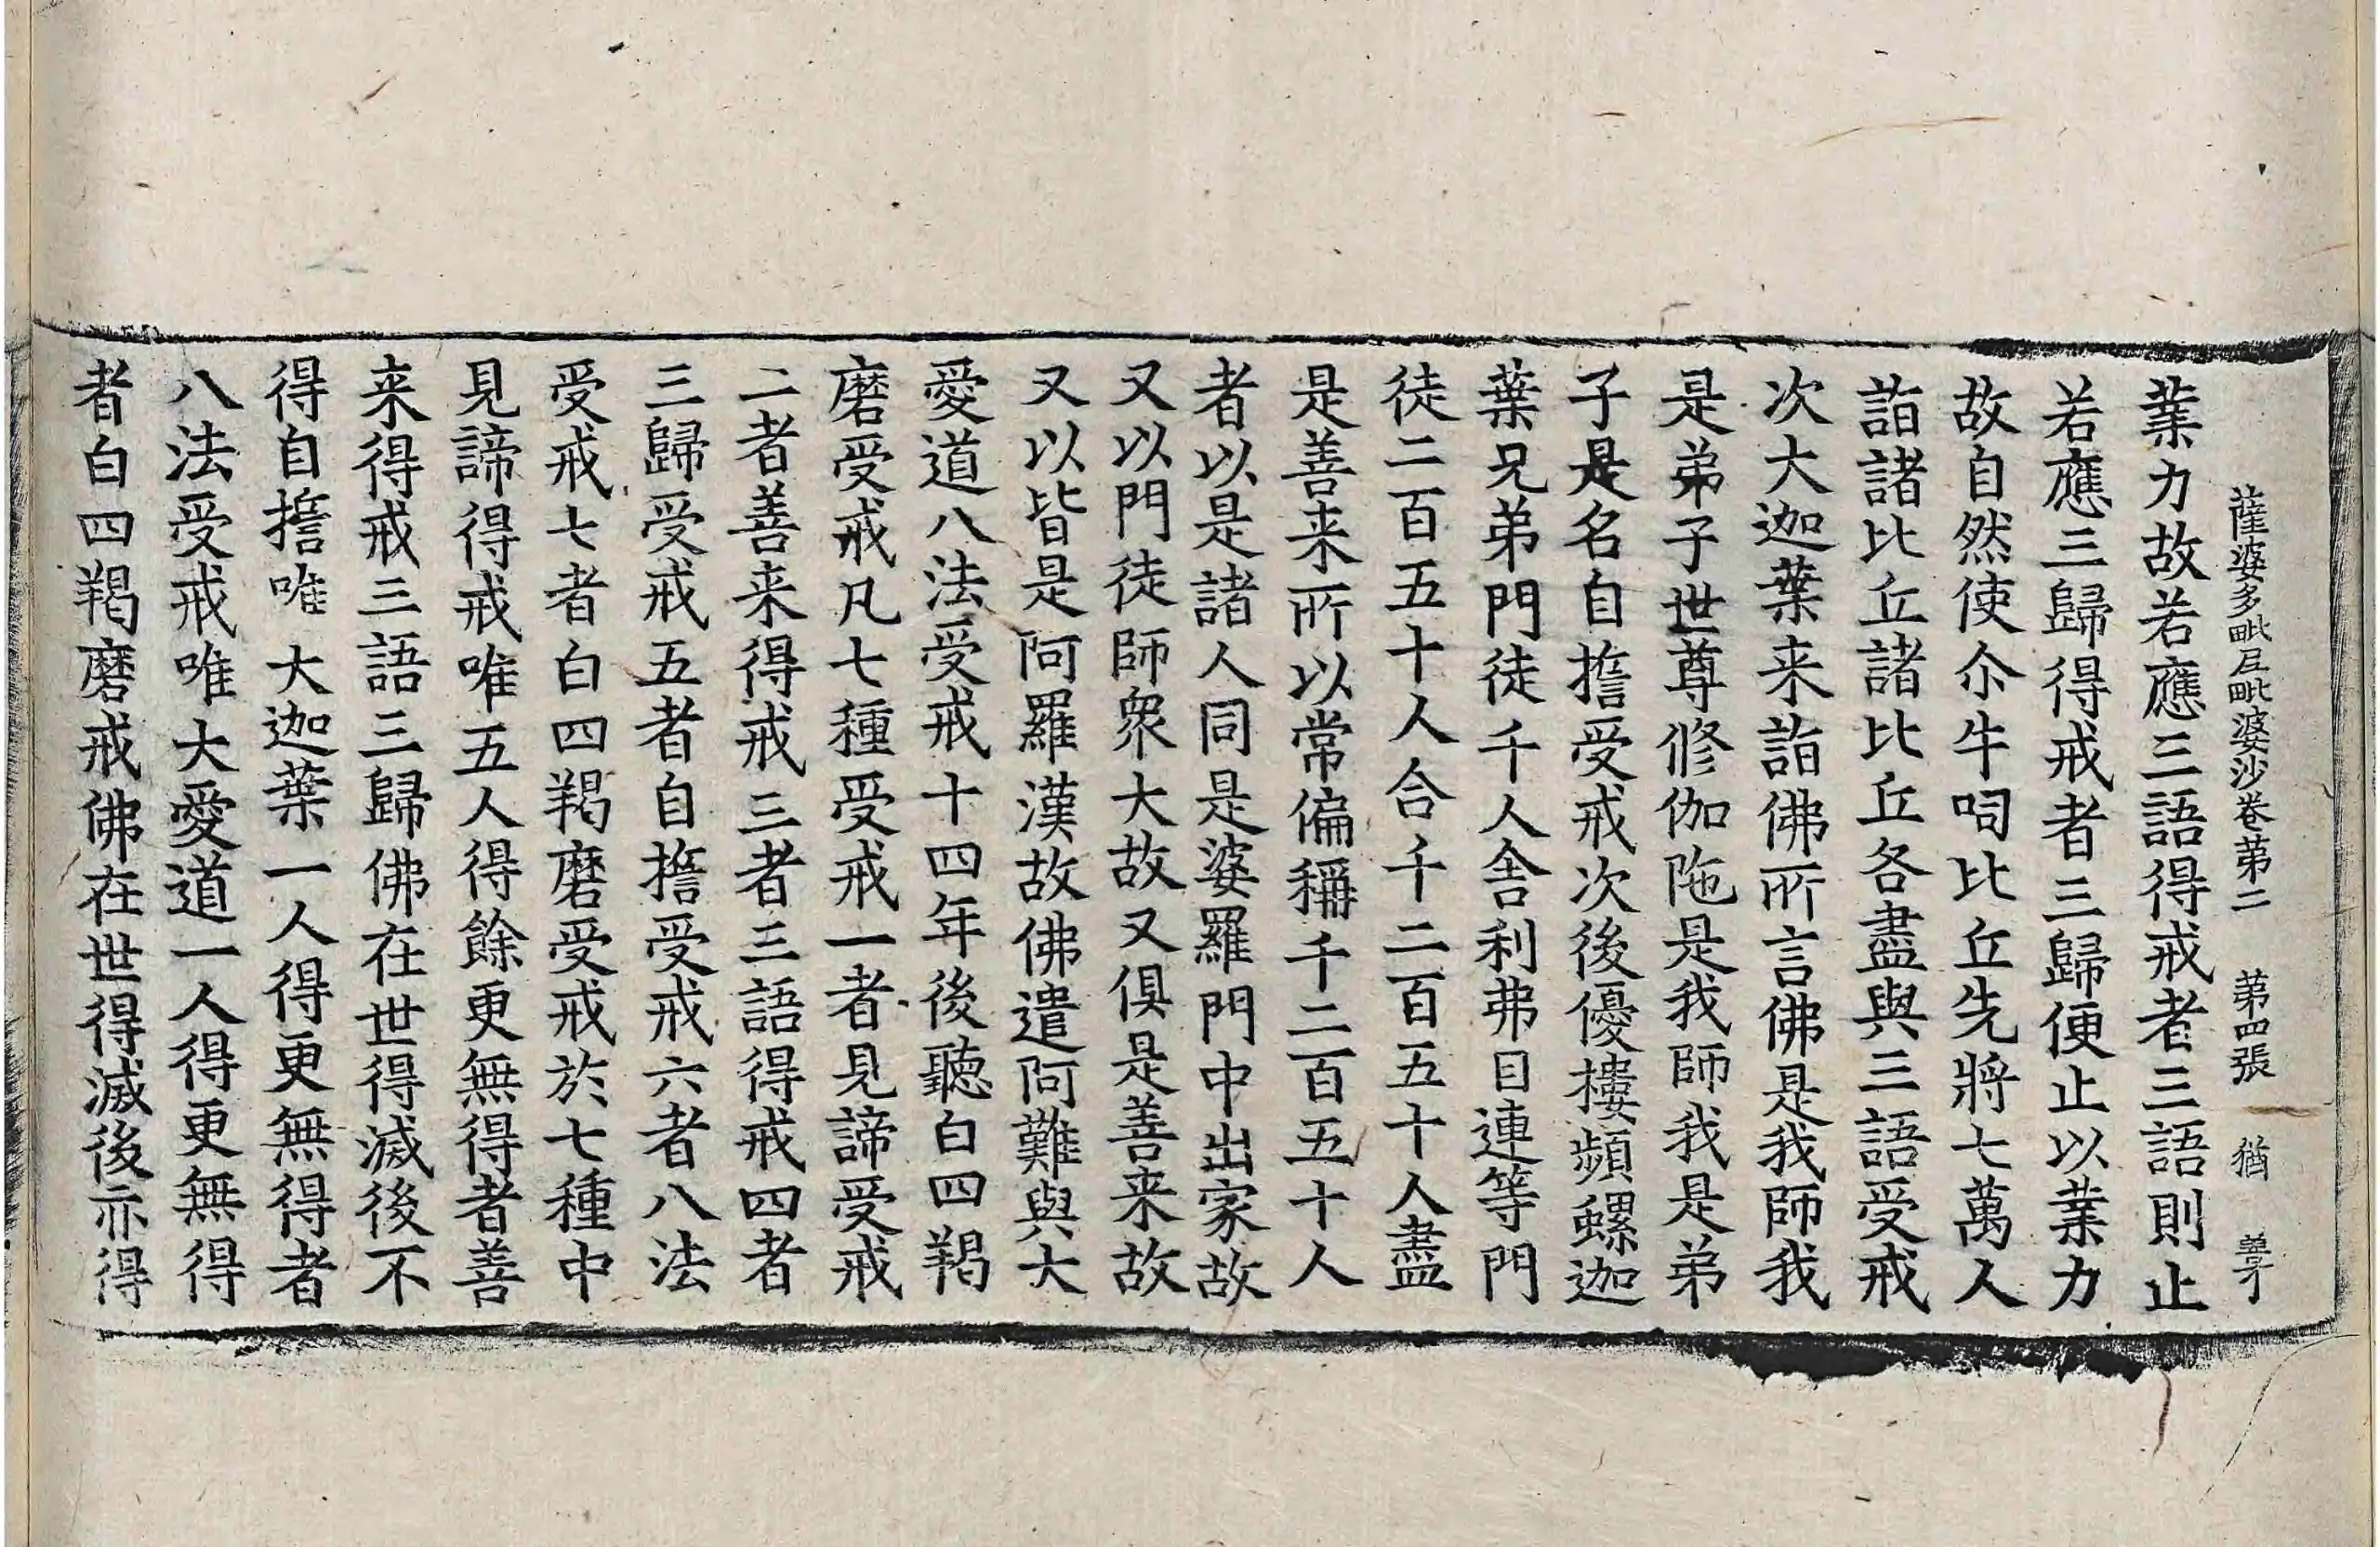 薩婆多毗尼毗婆沙卷苐二　苐四張　猶
業力故若應三語得戒者三語則止
若應三歸得戒者三歸便止以業力
故自然使尒牛呞比丘先將七萬人
詣諸比丘諸比丘各盡與三語受戒
次大迦葉来詣佛所言佛是我師我
是弟子世尊修伽陁是我師我是弟
子是名自㨾受戒次後優樓頻螺迦
葉兄弟門徒千人舎利弗目連等門
徒二百五十人合千二百五十人盡
是善来所以常偏稱千二百五十人
者以是諸人同是婆羅門中出家故
又以門徒師衆大故又俱是善来故
又以皆是阿羅漢故佛遣阿難與大
愛道八法受戒十四年後聽白四羯
磨受戒凡七種受戒一者見諦受戒
二者善来得戒三者三語得戒四者
三歸受戒五者自擔受戒六者八法
受戒七者白四羯磨受戒於七種中
見諦得戒唯五人得餘更無得者善
来得戒三語三歸佛在世得滅後不
得自擔唯大迦葉一人得更無得者
八法受戒唯大愛道一人得更無得
者白四羯磨戒佛在世得滅後亦得